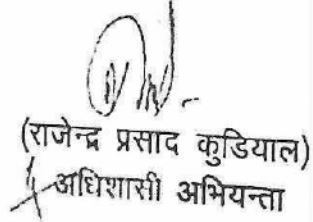 (राजेन्द्र प्रसाद कुडियाल)
अधिशासी अभियन्ता